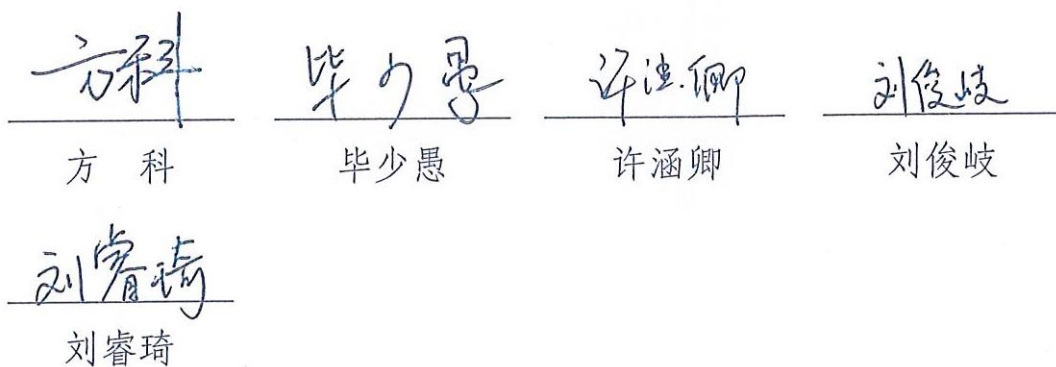 方科 毕少愚 许涵卿 刘俊岐
方 科 毕少愚 许涵卿 刘俊岐
刘睿琦
刘睿琦